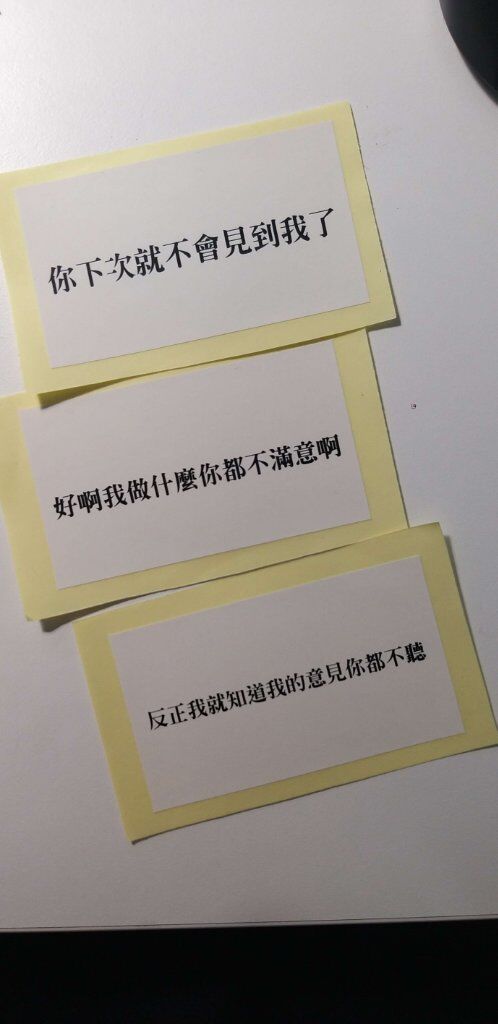 你下次就不會見到我了
好啊我做什麼你都不滿意啊
反正我就知道我的意見你都不聽